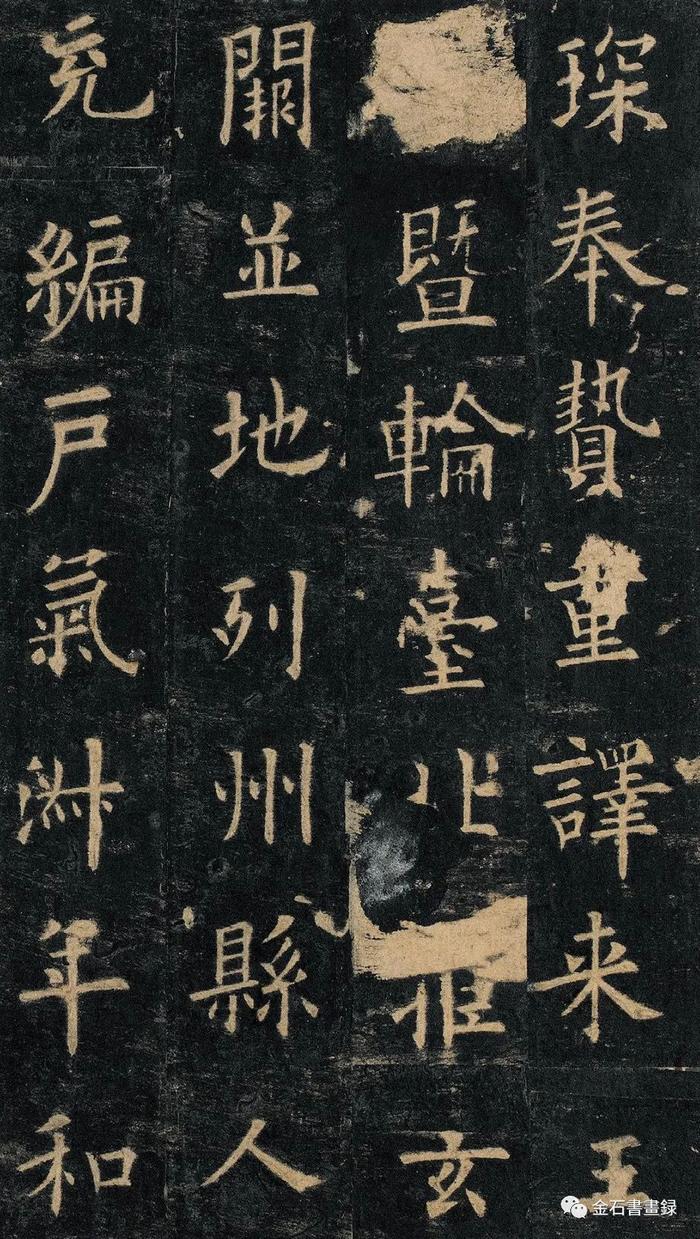 琛奉贄重譯来王
暨輪臺北拒玄
闕並地列州縣人
充編戶氣淑年和
金石書畫録